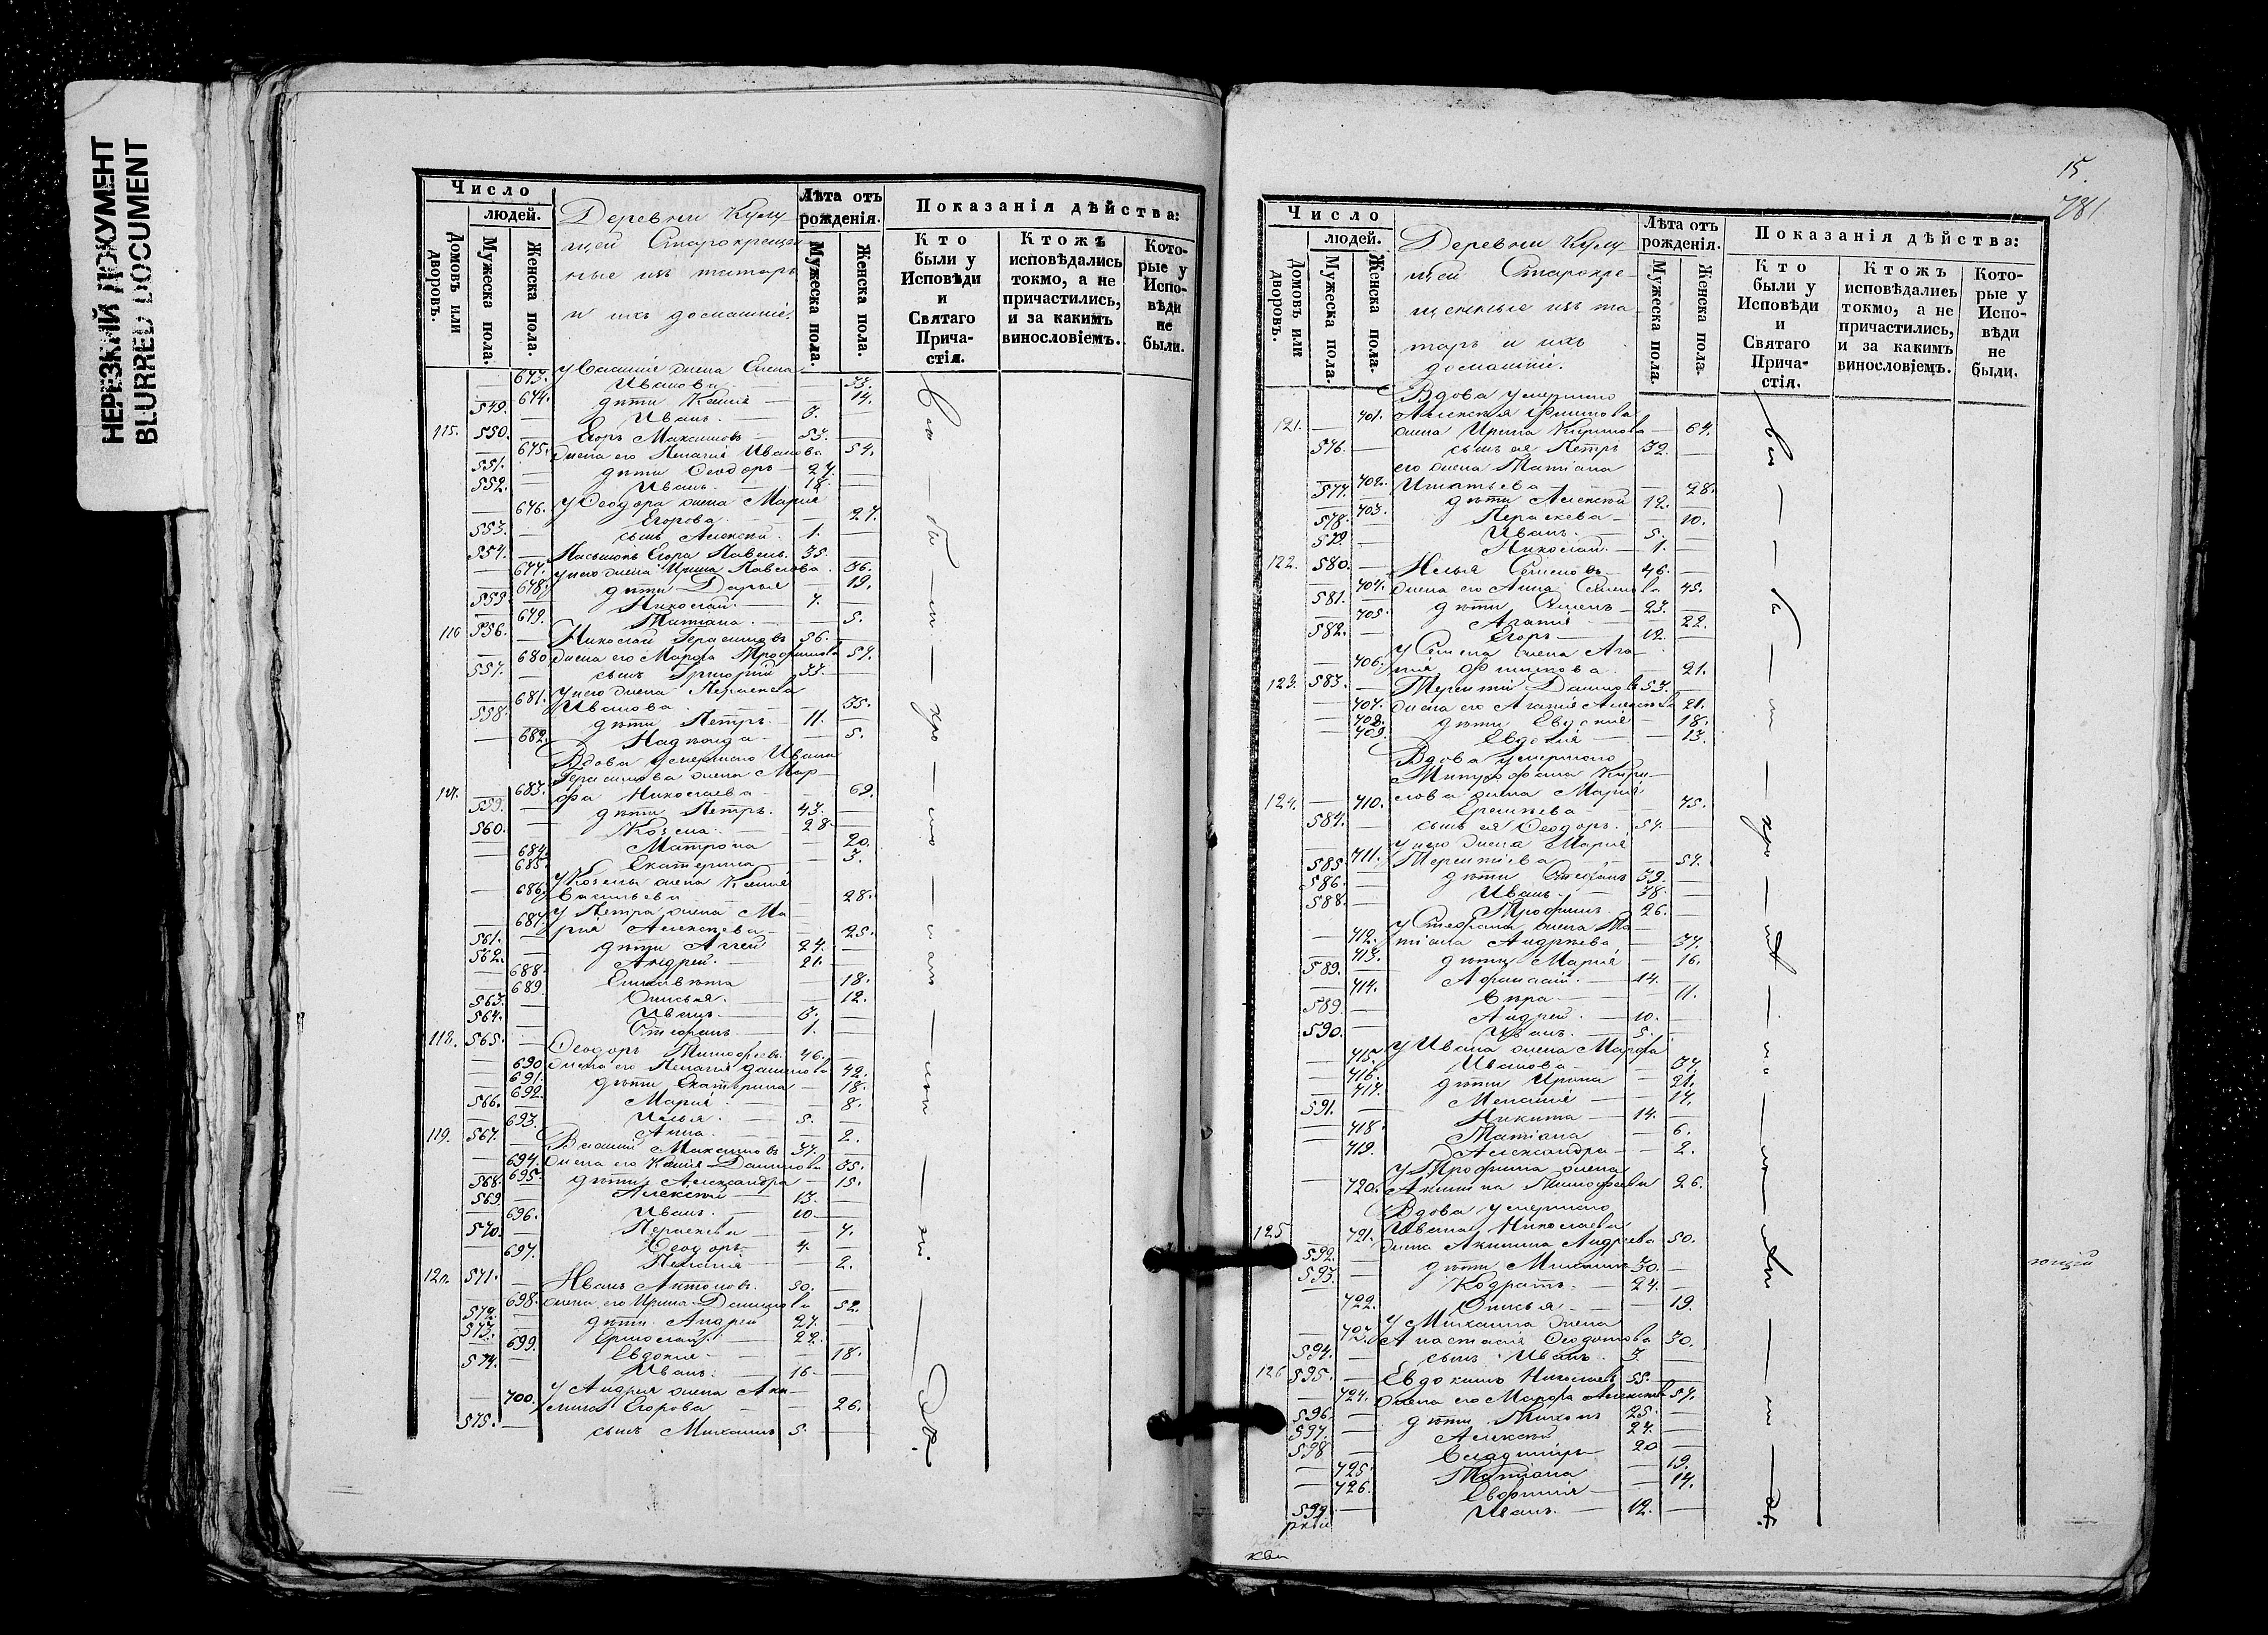 НЕРЕЗКИЙ ДОКУМЕНТ
BLURRED DOCUMENT
Число
людей.
Домовъ или дворовъ.
Мужеска пола.
Женска пола.
Деревни
Старокрещен
ные изъ татаръ
и ихъ домашніе.
Лѣта отъ рожденія.
Мужеска пола.
Женска пола.
Показанія дѣйства:
Кто были у Исповѣди и Святаго Прича-стія.
Ктожъ исповѣдались токмо, а не причастились, и за какимъ винословіемъ.
Кото-рые у Испо-вѣди не были.
673. жена
Иванова 33.
674. дѣти 14.
549. Иванъ 3.
115. 550. Егоръ Максимовъ 53.
675. жена его Пелагія Иванова 54.
551. дѣти Ѳеодоръ 27.
552. Иванъ 18.
676. У Ѳеодора жена Марія
Егорова 27.
553. сынъ Алексѣй 1.
554. Пасынокъ Егора Павелъ 35.
677. у него жена Ирина Павлова 36.
678. дѣти Дарья 19.
555. Николай 7.
679. Татіана 5.
116 556. Николай Герасимовъ 56.
680 жена его Марѳа Трофимова 54.
557. сынъ Григорій 33.
681. у него жена Параскева
Иванова 35.
558. дѣти Петръ 11.
682. Надежда 5.
Вдова умершаго Ивана
Герасимова жена Мар-
117. 683. ѳа Николаева 69.
559. дѣти Петръ 43.
560. Козма 28.
684. Матрона 20.
685. Екатерина 3.
686. У Козмы жена Ксенія
Васильева 28.
687. У Петра жена Ма
рія Алексѣева 25.
561. дѣти Аггей 24.
562. Андрей 21.
688. Елисавета 18.
689. Онисья 12.
563. Иванъ 3.
564. Стефанъ 1.
118. 565. Ѳеодоръ Тимофеевъ 46.
690 жена его Пелагія Данилова 42.
691. дѣти Екатерина 18.
692. Марія 8.
566. Илья 5.
693. Анна 2.
119. 567. Василій Максимовъ 37.
694. жена его Ксенія Данилова 35.
695. дѣти Александра 15.
568. Алексѣй 13.
569 Иванъ 10
696. Параскева 7.
570. Ѳеодоръ 4.
697. Пелагія 2.
120. 571. Иванъ Антоновъ 50.
698. жена его Ирина Данилова 52.
572. дѣти Андрей 27.
573. Ермолай 22.
699. Евдокія 18.
574. Иванъ 16
700. У Андрея жена Аки
лина Егорова 26.
575. сынъ Михаилъ 5.
15.
781
Число
людей.
Домовъ или дворовъ.
Мужеска пола.
Женска пола.
Деревни
Старокре-
щенные изъ та-
таръ и ихъ
домашніе.
Лѣта отъ рожденія.
Мужеска пола.
Женска пола.
Показанія дѣйства:
Кто были у Исповѣди и Святаго Прича-стія.
Ктожъ исповѣдались токмо, а не причастились, и за какимъ винословіемъ.
Кото-рые у Испо-вѣди не были.
Вдова умершаго
701. Алексѣя Филипова
121. жена Ирина 64.
576. сынъ ея Петръ 32.
его жена Татіана
702. Игнатьева 28.
577. дѣти Алексѣй 12.
703. Параскева 10.
578. Иванъ 5.
579. Николай 1.
122. 580. Илья Семеновъ 46.
704. жена его Анна Семенова 45.
581. дѣти Семенъ 23.
705. Агапія 22.
582. Егоръ 12.
У Семена жена Ага-
706. пія Филипова 21.
123. 583. Терентій Даниловъ 53.
707. жена его Агапія Алексѣева 21.
708. дѣти Евдокія 18.
709. Евдокія 13.
Вдова умершаго
Митрофана Кири-
лова жена Марія
124. 710. Еремѣева 75.
584. сынъ ея Ѳеодоръ 54.
у него жена Марія
711. Терентіева 54.
585. дѣти Стефанъ 39.
586. Иванъ 38.
588. Трофимъ 26.
У Стефана жена Та
712. тіана Андреева 37.
713. дѣти Марія 16.
589. Афанасій 14.
714. Вѣра 11.
589. Андрей 10.
590. Иванъ 5.
У Ивана жена Марѳа
715. Иванова 37.
716. дѣти Ирина 21.
717. Меланія 17.
591. Никита 14.
718. Татіана 6.
719. Александра 2.
У Трофима жена
720. Акилина Тимофеева 26.
Вдова умершаго
Ивана Николаева
125 721. жена Акилина Андреева 50.
592. дѣти Михаилъ 30.
593. Кодратъ 24.
722. Онисья 19.
У Михаила жена
723. Анастасія Ѳеодотова 30.
594. сынъ Иванъ 3.
126 595. Евдокимъ Николаевъ 55.
724. жена его Марѳа Алексѣева 54.
596. дѣти Тихонъ 25.
597. Алексѣй 24.
598 Владимиръ 20
725. Татіана 19.
726. Евфимія 14.
599. Иванъ 12.